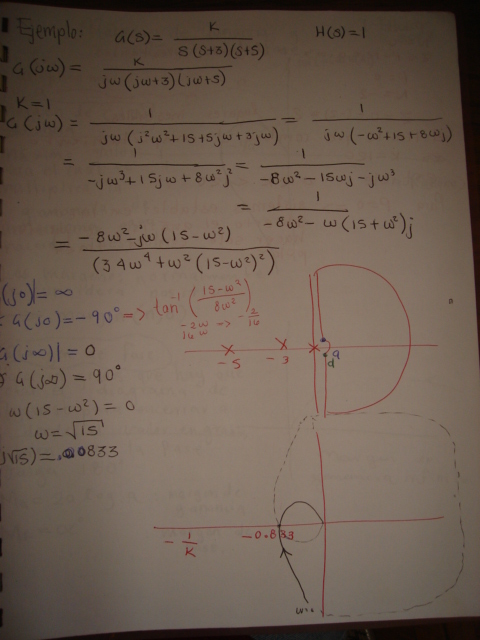 Ejemplo: G(s) = K / S(S+3)(S+5) H(s)=1
G(jω) = K / jω(jω+3)(jω+5)
K=1
G(jω) = 1 / jω(j²ω²+15+5jω+3jω) = 1 / jω(-ω²+15+8ωj)
= 1 / -jω³+15jω+8ω²j² = 1 / -8ω²-15ωj-jω³
= 1 / -8ω²-ω(15+ω²)j
= -8ω²-jω(15-ω²) / (34ω⁴+ω²(15-ω²)²)
(j0)|=∞
G(j0)=-90° => tan⁻¹(15-ω² / 8ω²)
G(j∞)|=0
G(j∞)=90°
ω(15-ω²)=0
ω=√15
j√15)=.0833
-5 -3 a
d
-1/K -0.833